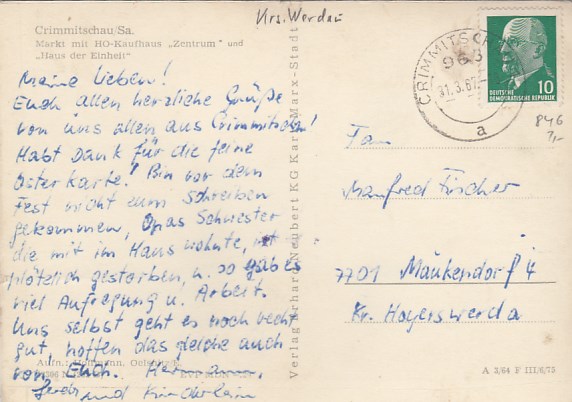 Krs. Werdau
Crimmitschau/Sa.
Markt mit HO-Kaufhaus „Zentrum" und
„Haus der Einheit"
Meine Lieben!
Euch allen herzliche Grüße
von uns allen aus Crimmitschau!
Habt Dank für die feine
Osterkarte! Bin vor dem
Fest nicht zum Schreiben
gekommen, Opas Schwester
die mit im Haus wohnte, ist
plötzlich gestorben, u. so gab es
viel Aufregung u. Arbeit.
Uns selbst geht es noch recht
gut, hoffen das gleiche auch
von Euch. Hermann,
und
Verlag Erhard Neubert KG Karl-Marx-Stadt
CRIMMITSCH
963
31.3.67
a
10
DEUTSCHE
DEMOKRATISCHE REPUBLIK
846
7,-
Fam
Manfred Fischer
7701 Maukendorf 4
Kr. Hoyerswerda
A 3/64 F III/6/75